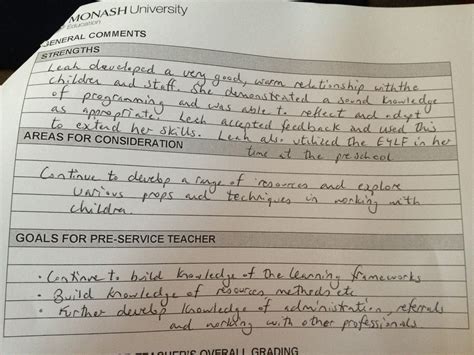 MONASH University
Education
GENERAL COMMENTS
STRENGTHS
Leah developed a very good, warm relationship with the
children and staff. She demonstrated a sound knowledge
of programming and was able to reflect and adapt
as appropriate. Leah accepted feedback and used this
to extend her skills. Leah also utilized the EYLF in her
time at the preschool
AREAS FOR CONSIDERATION
Continue to develop a range of resources and explore
various props and techniques in working with
children.
GOALS FOR PRE-SERVICE TEACHER
• Continue to build knowledge of the learning frameworks
• Build knowledge of resources methods etc
• Further develop knowledge of administration, referrals
and working with other professionals
TEACHER'S OVERALL GRADING